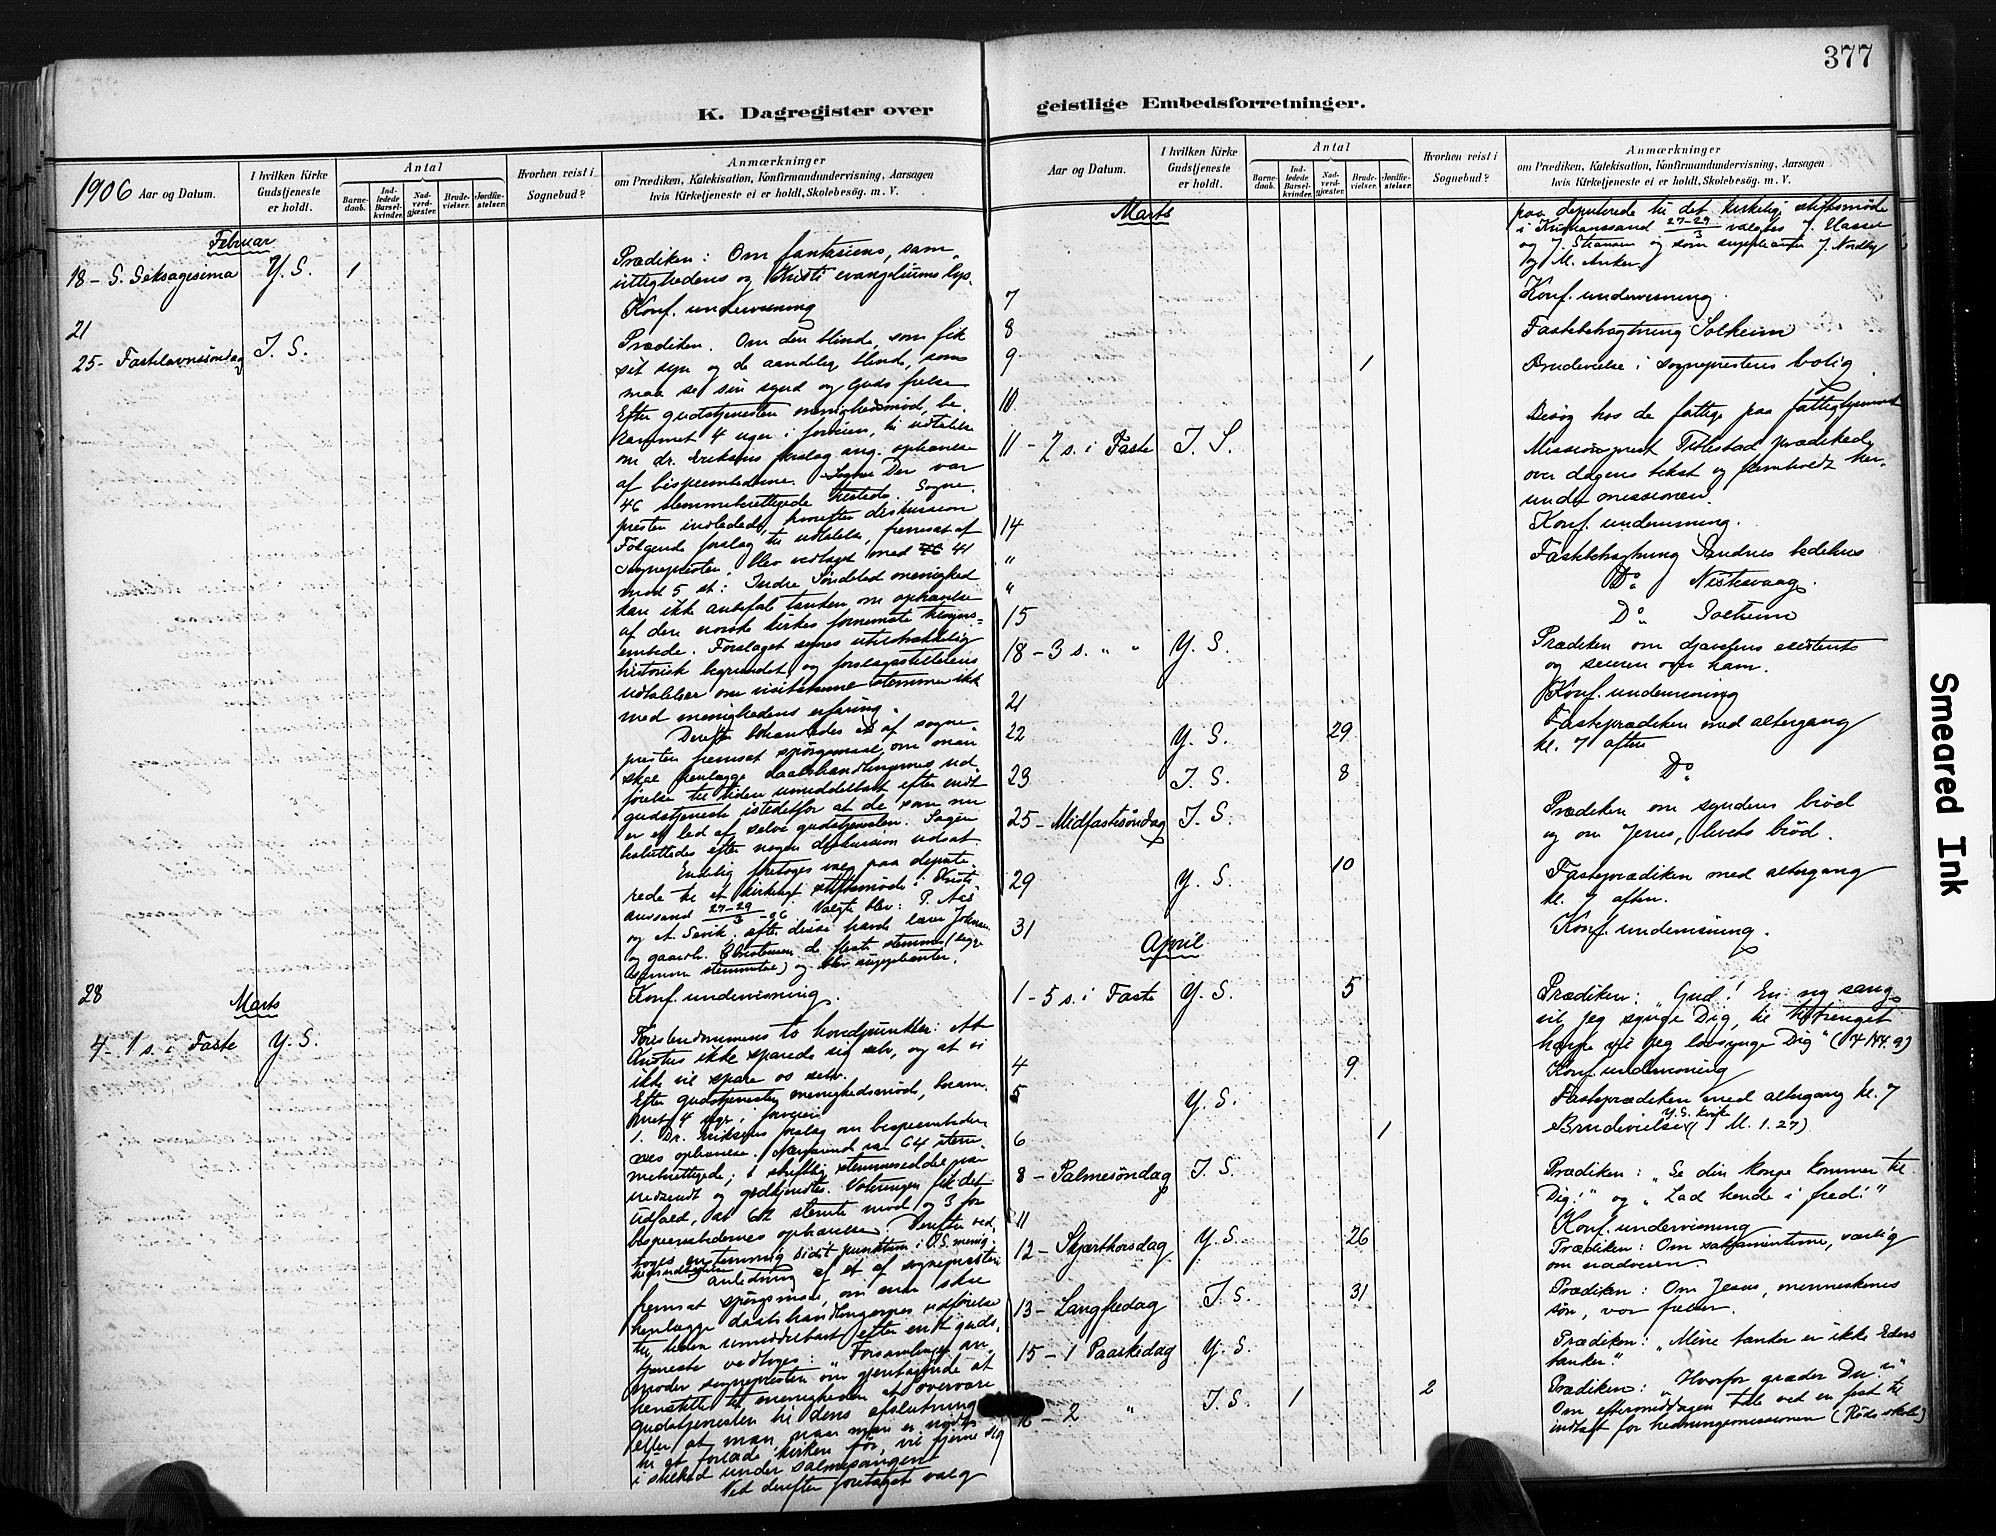 377
K. Dagregister over
geistlige Embedsforretninger.
1906 Aar og Datum.
I hvilken Kirke Gudstjeneste er holdt.
Antal
Barne-daab.
Ind-ledede Barsel-kvinder.
Nad-verd-gjæster.
Brude-vielser.
Jordfæ-stelser.
Hvorhen reist i Sognebud?
Anmærkninger
om Prædiken, Katekisation, Konfirmandundervisning, Aarsagen
hvis Kirketjeneste ei er holdt, Skolebesøg. m. V.
Februar
18 - S. Seksagesima Y. S. 1
Prædiken: Om fantasiens, sam-
vittighedens og Kristi evangeliums lys.
21
Konf. undervisning
25 - Fastelavnssøndag I. S.
Prædiken. Om den blinde, som fik
sit syn og de aandelig blind, som
maa se sin synd og Guds frelse
Efter gudstjenesten menighedsmød, be-
rammet 4 uger i forveien, til udtalelse
om dr. Eriksens forslag ang. ophævelse
af bispeembederne. Der var
46 stemmeberettigede tilstede. Sogne-
presten indledede, hvorefter diskussion
Følgende forslag til udtalelse, fremsat af
sognepresten, blev vedtaget med 41
mod 5 st: Indre Søndeled menighed
kan ikke anbefale tanken om ophævelse
af den norske kirkes fornemste tilsyns-
embede. Forslaget synes utilstrækkelig
historisk begrundet, og forslagsstillerens
udtalelser om visitatserne stemmer ikke
med menighedens erfaring.
Derefter behandledes et af sogne-
presten fremsat spørgsmaal, om man
skal henlægge daabshandlingernes ud-
førelse til tiden umiddelbart efter endt
gudstjeneste istedetfor at de som nu
er et led af selve gudstjenesten. Sagen
besluttedes efter nogen diskussion udsat.
Endelig foretoges valg paa depute-
rede til et kirkeligt stiftsmøde i Kristi-
ansand 27-29/3 - 06. Valgte blev: P. Aas
og A. Savik. efter disse havde lærer Johnsen
og gaardb. Christensen de fleste stemmer (begge
samme stemmetal) og blev suppleanter.
28
Konf. undervisning.
Marts
4 - 1 s. i Faste Y. S.
Korslidommens to hovedpunkter: At
Kristus ikke sparede sig selv, og at vi
ikke vil spare os selv.
Efter gudstjenesten menighedsmøde, beram-
met 4 uger i forveien
1. Dr. Eriksens forslag om bispeembeder-
nes ophævelse. Nærværende var 64 stem-
meberettigede; 1 skriftlig stemmeseddel var
nedsendt og godkjendtes. Voteringen fik det
udfald, at 62 stemte mod og 3 for
bispeembedernes ophævelse. Derefter ved-
toges enstemmig sidste punktum i I.S. menig-
heds
anledning af et af sognepresten
fremsat spørgsmaal, om man skal
henlægge daabshandlingernes udførelse
til tiden umiddelbart efter endt guds-
tjeneste vedtoges: "Forsamlingen an-
moder sognepresten om gjentagende at
henstille til menigheden at overvære
gudstjenesten til dens afslutning
eller at man, naar man er nødt
til at forlade kirken før, vil fjerne sig
i stilhed under salmesangen"
Ved derefter foretaget valg
Aar og Datum.
I hvilken Kirke Gudstjeneste er holdt.
Antal
Barne-daab.
Ind-ledede Barsel-kvinder.
Nad-verd-gjæster.
Brude-vielser.
Jordfæ-stelser.
Hvorhen reist i Sognebud?
Anmærkninger
om Prædiken, Katekisation, Konfirmandundervisning, Aarsagen
hvis Kirketjeneste ei er holdt, Skolebesøg. m. V.
Marts
paa deputerede til det kirkelige stiftsmøde
i Kristianssand 27-29/3 valgtes J.
og J. Stiansen og som suppleanter J. Nordby
og M. Anker
7 Konf. undervisning.
8 Fastebetragtning Solheim
9 1 Brudevielse i sogneprestens bolig
10. Besøg hos de fattige paa fattighjemmet
11 - 2 s. i Faste I. S. Missionsprest prædikede
over dagens tekst og fremholdt her-
under missionen.
14 Konf. undervisning.
" Fastebetragtning Sandnes bedehus
" Do Nistesvaag.
15 Do Solheim
18 - 3 s. " " Y. S. Prædiken om djævelens existents
og seieren over ham.
21 Konf. undervisning
22 Y. S. 29 Fasteprædiken med altergang
kl. 7 aften
23 I. S. 8 Do
25 - Midfastesøndag I. S. Prædiken om syndens brød
og om Jesus, livets brød.
29 Y. S. 10 Fasteprædiken med altergang
kl. 7 aften.
31 Konf. undervisning.
April
1 - 5 s. i Faste Y. S. 5 Prædiken: "Gud! En ny sang
vil jeg synge Dig, til tistrenget
harpe vil jeg lovsynge Dig" (144. 9)
4 9 Konf. undervisning
5 Y. S. Fasteprædiken med altergang kl. 7
6 1 Brudevielse (Y. S. kirke M. 1. 27)
8 - Palmesøndag I. S. Prædiken: "Se din konge kommer til
Dig!" og "Lad hende i fred!"
11 Konf. undervisning
12 - Skjærthorsdag Y. S. 26 Prædiken: Om sakramenterne, særlig
om nadveren.
13 - Langfredag I. S. 31 Prædiken: Om Jesus, menneskenes
søn, vor frelser.
15 - 1 Paaskedag Y. S. Prædiken: "Mine tanker er ikke Eders
tanker."
16 - 2 " I. S. 1 2 Prædiken: "Hvorfor græder Du?"
Om eftermiddagen tale ved en fest til
indtægt for hedningemissionen (Røds skole)
Smeared Ink